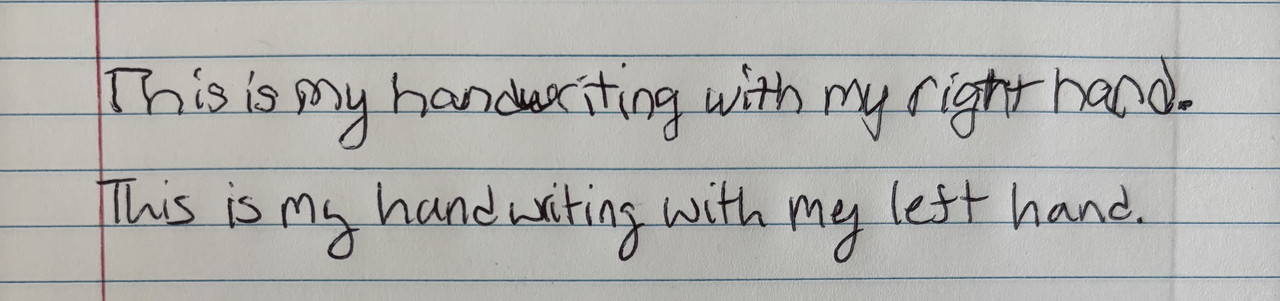 This is my handwriting with my right hand.
This is my handwriting with my left hand.